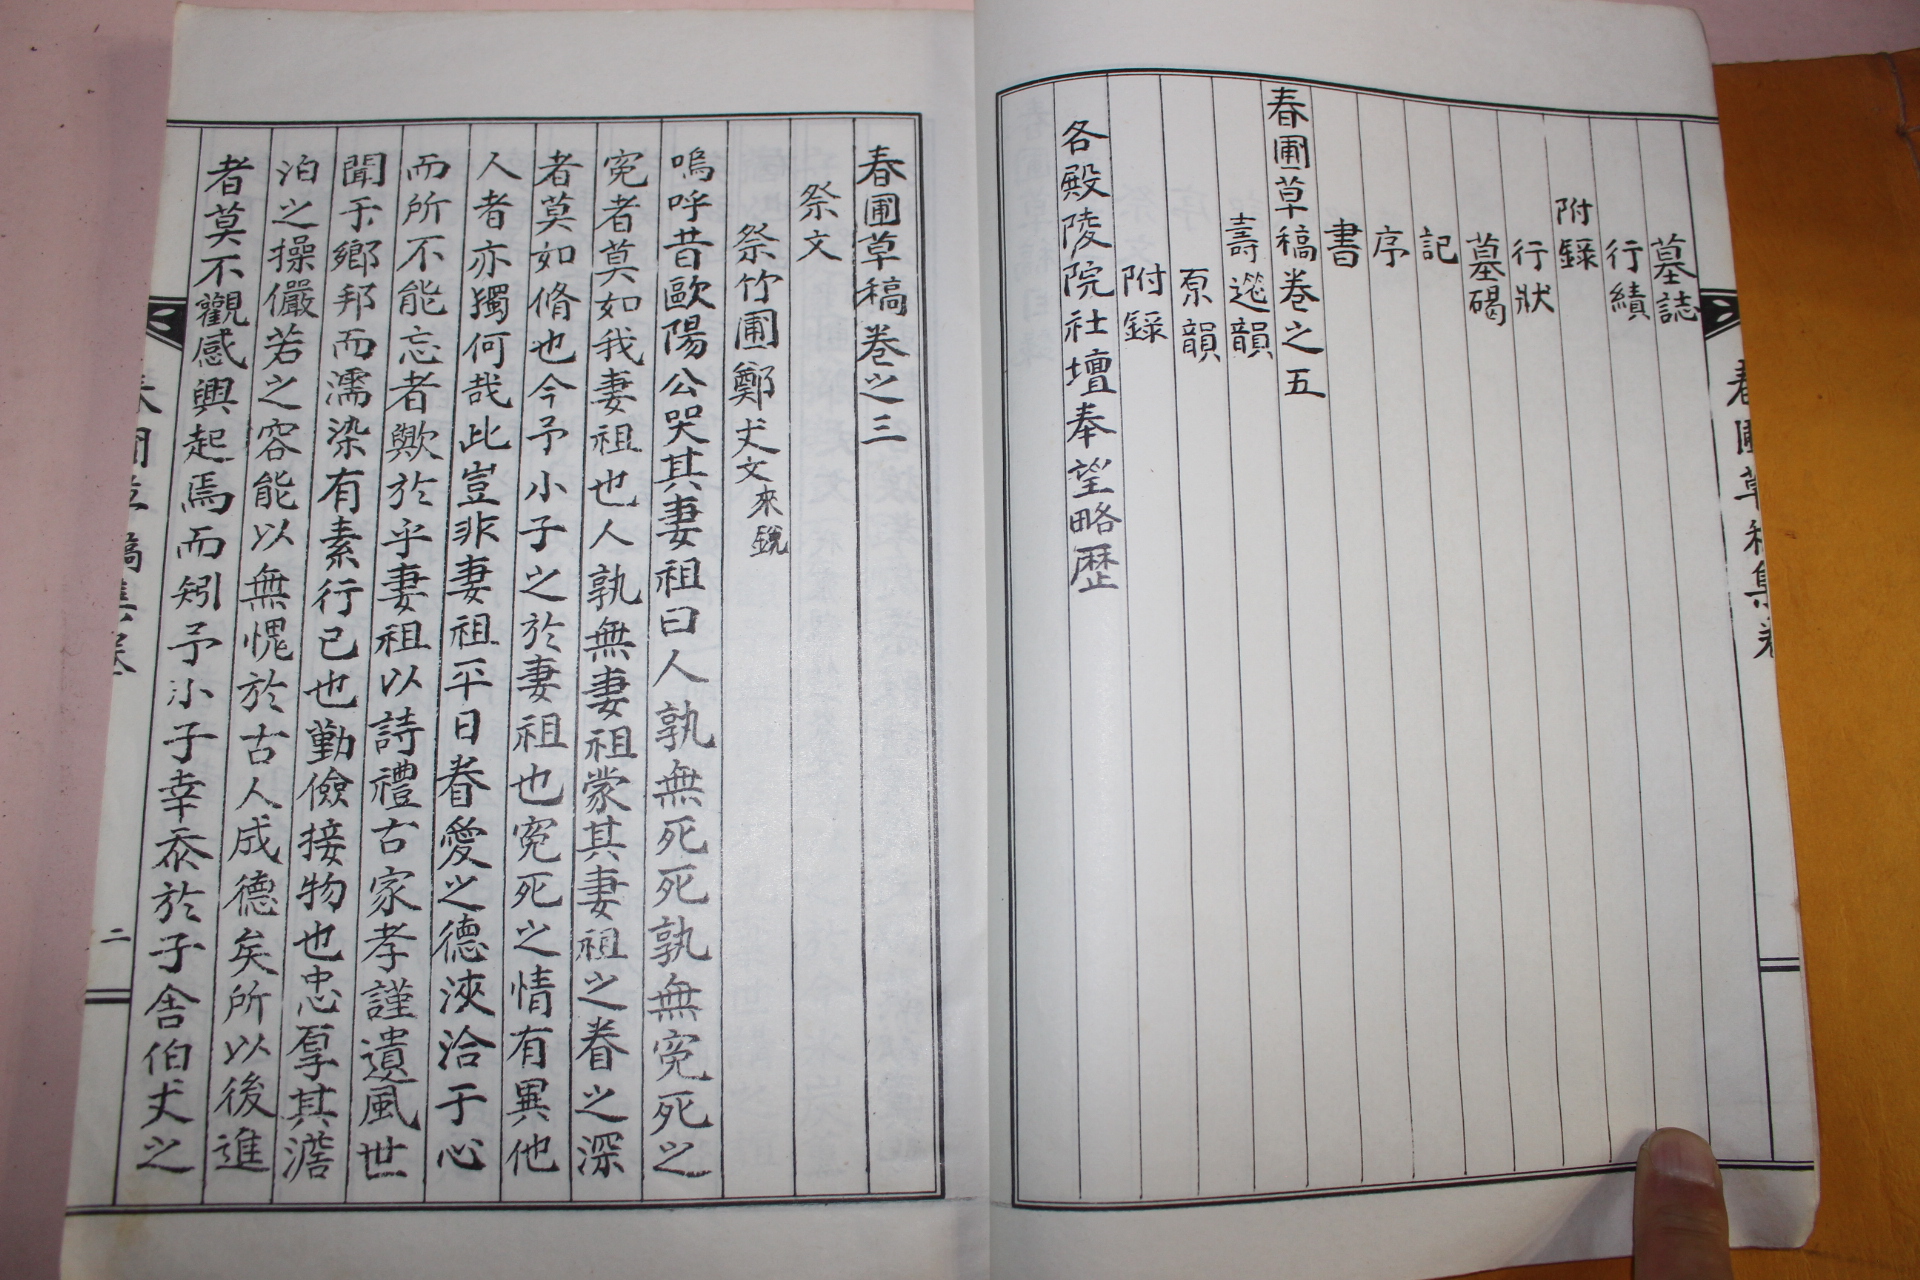 春圃草稿集卷
墓誌
行績
附錄
行狀
墓碣
記
序
書
春圃草稿卷之五
壽筵韻
原韻
附錄
各殿陵院社壇奉望略歷
春圃草稿卷之三
祭文
祭竹圃鄭丈文來銳
嗚呼昔歐陽公哭其妻祖曰人孰無死死孰無寃死之
寃者莫如我妻祖也人孰無妻祖蒙其妻祖之眷之深
者莫如脩也今予小子之於妻祖也寃死之情有異他
人者亦獨何哉此豈非妻祖平日眷愛之德浹洽于心
而所不能忘者歟於乎妻祖以詩禮古家孝謹遺風世
聞于鄉邦而濡染有素行已也勤儉接物也忠厚其澹
泊之操儼若之容能以無愧於古人成德矣所以後進
者莫不觀感興起焉而矧予小子幸忝於子舍伯丈之
二